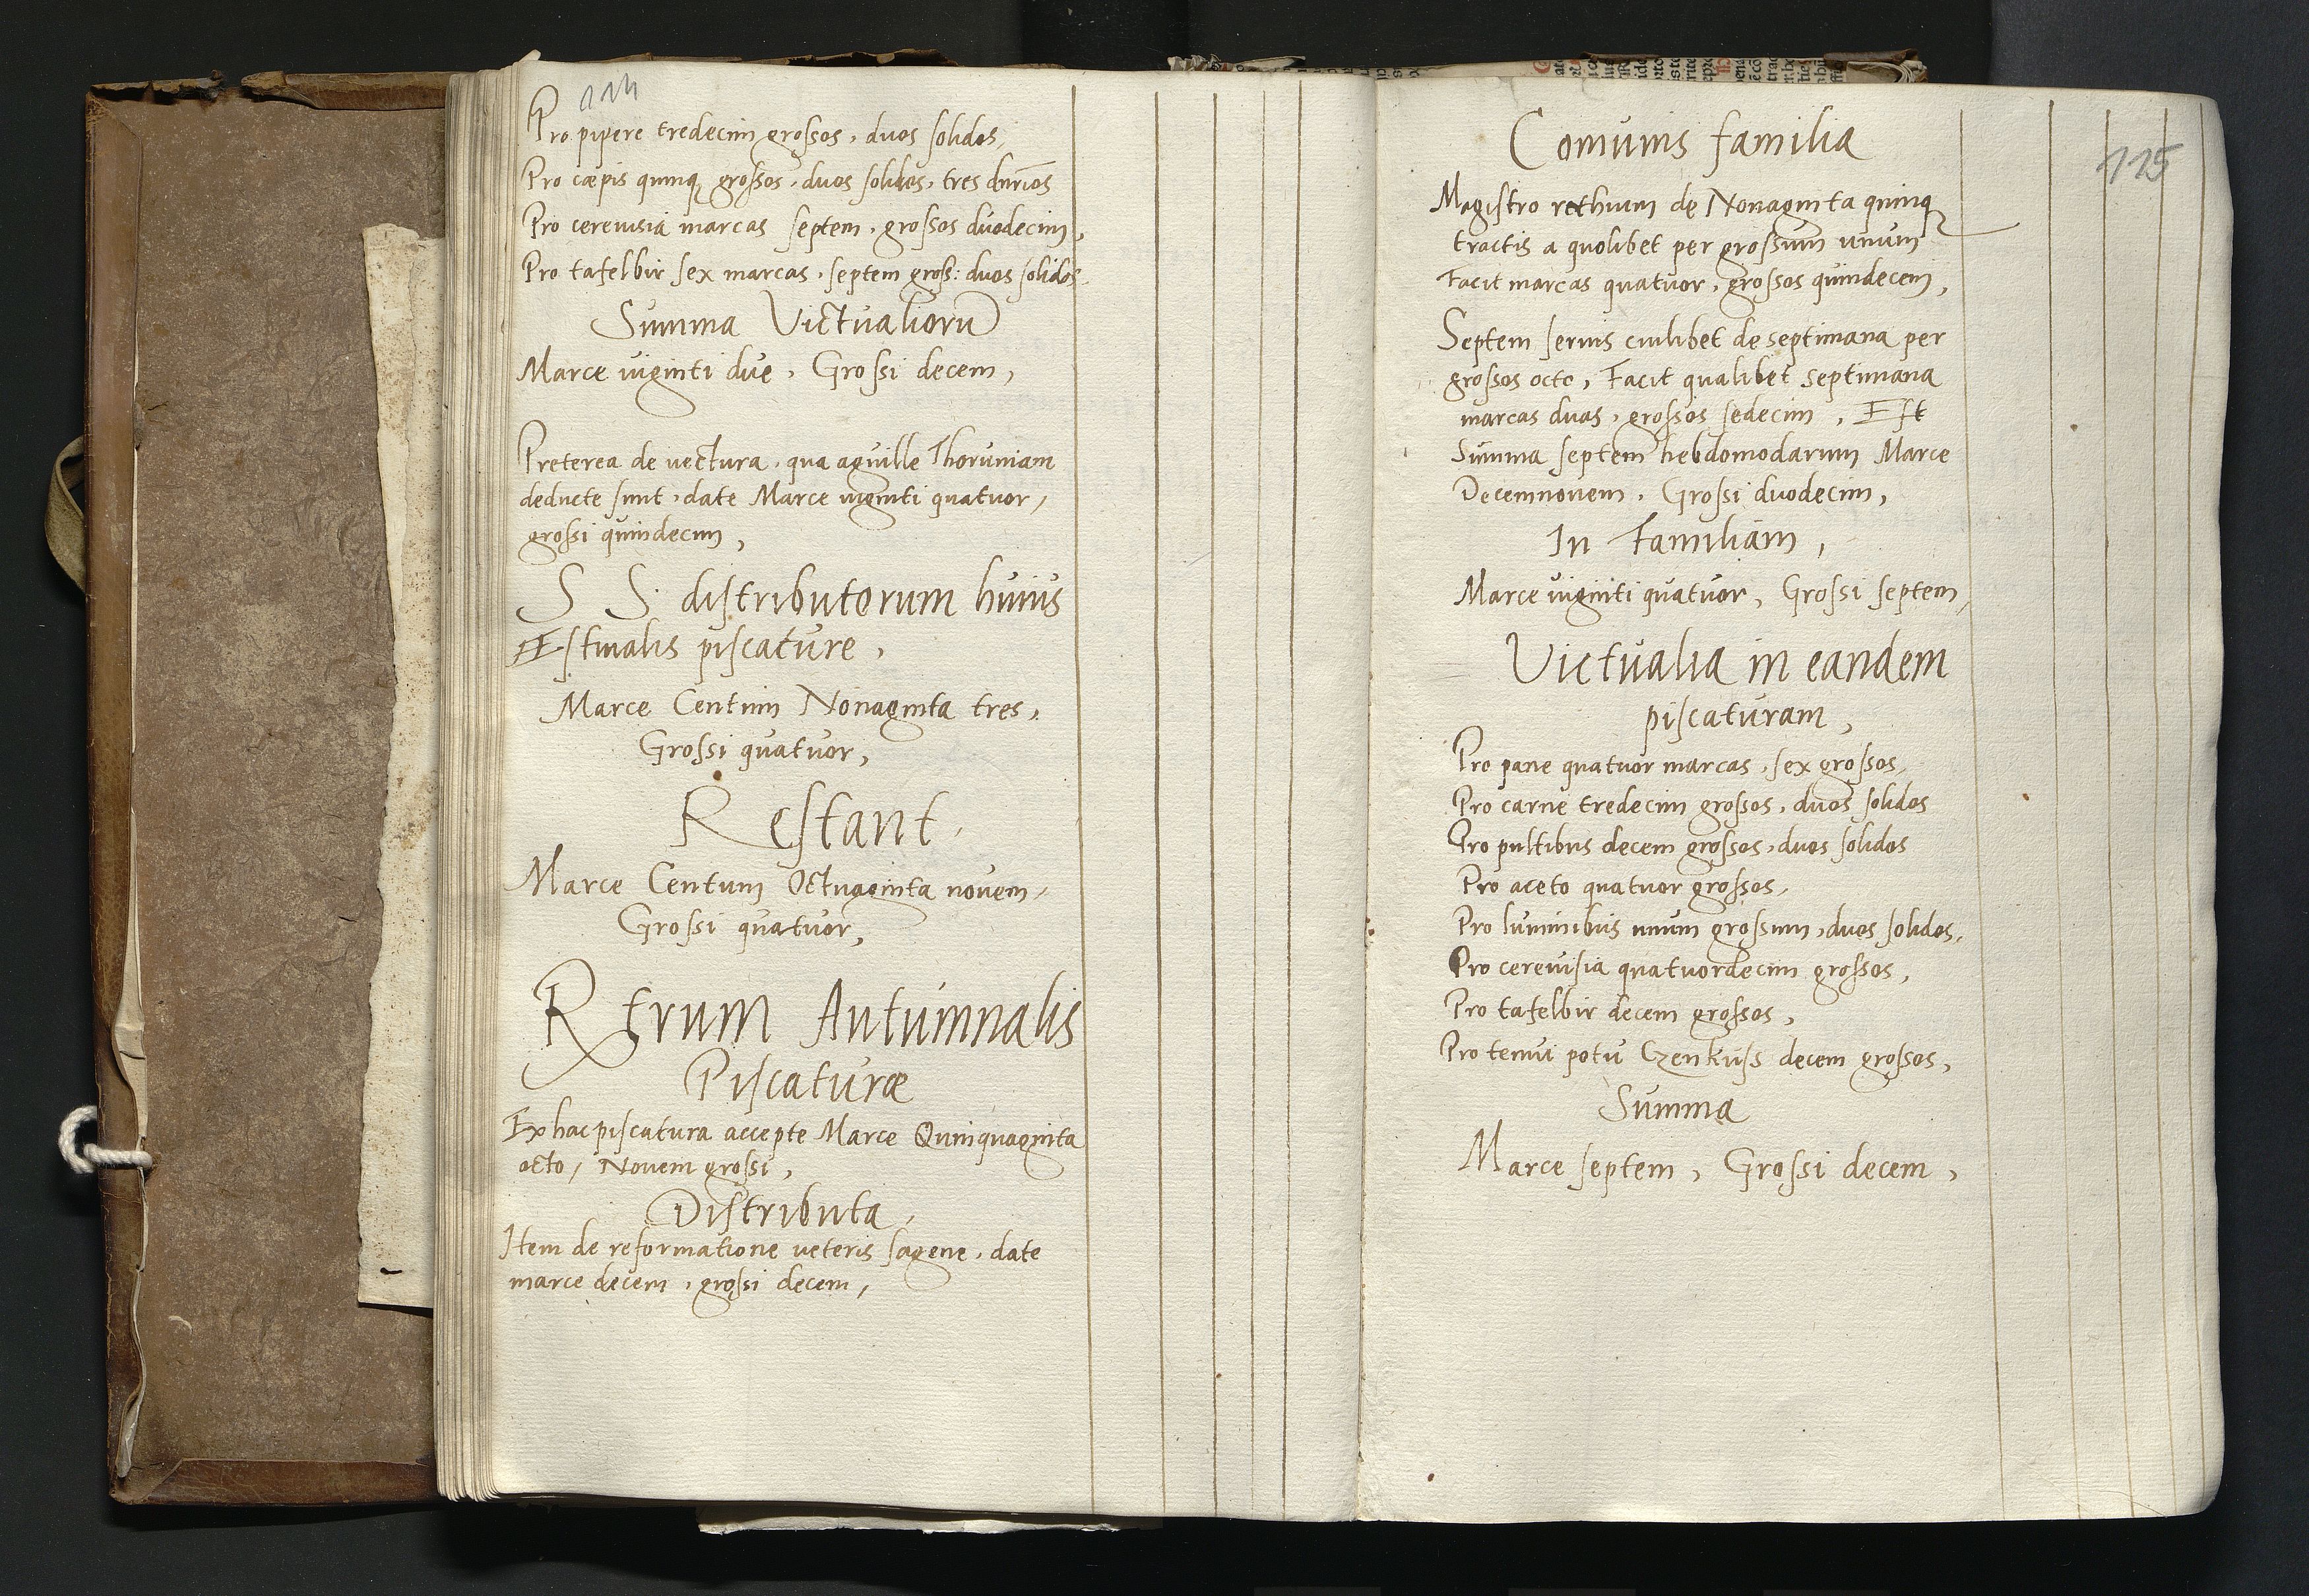 114
Pro pipere tredecim grossos, duos solidos,
Pro cæpis quinq grossos, duos solidos, tres dnrīos
Pro cereuisia marcas septem, grossos duodecim,
Pro tafelbir sex marcas, septem gross: duos solidos.
Summa Victualiorū
Marce uiginti due, Grossi decem,
Preterea de uectura, qua aguille Thoruniam
deducte sunt, date Marce uiginti quatuor,
grossi quindecim,
S S. distributorum huius
Estiualis piscature,
Marce Centum Nonaginta tres,
Grossi quatuor,
Restant.
Marce Centum Octuaginta novem,
Grossi quatuor,
Rerum Autumnalis
Piscaturæ
Ex hac piscatura accepte Marce Quinquaginta
octo, Novem grossi,
Distributa,
Item de reformatione ueteris sagene, date
marce decem, grossi decem,
115
Comunis familia
Magistro rethium de Nonaginta quinq
tractis a quolibet per grossum unum
Facit marcas quatuor, grossos quindecem,
Septem seruis cuilibet de septimana per
grossos octo, Facit qualibet septimana
marcas duas, grossos sedecim, Est
Summa septem hebdomodarum Marce
Decemnouem, Grossi duodecim,
In Familiam,
Marce uiginti quatuor, Grossi septem,
Victualia in eandem
piscaturam,
Pro pane quatuor marcas, sex grossos,
Pro carne tredecim grossos, duos solidos
Pro pultibus decem grossos, duos solidos
Pro aceto quatuor grossos,
Pro luminibus unum grossum, duos solidos,
Pro cereuisia quatuordecim grossos,
Pro tafelbir decem grossos,
Pro tenui potu Czenkuss decem grossos,
Summa
Marce septem, Grossi decem,